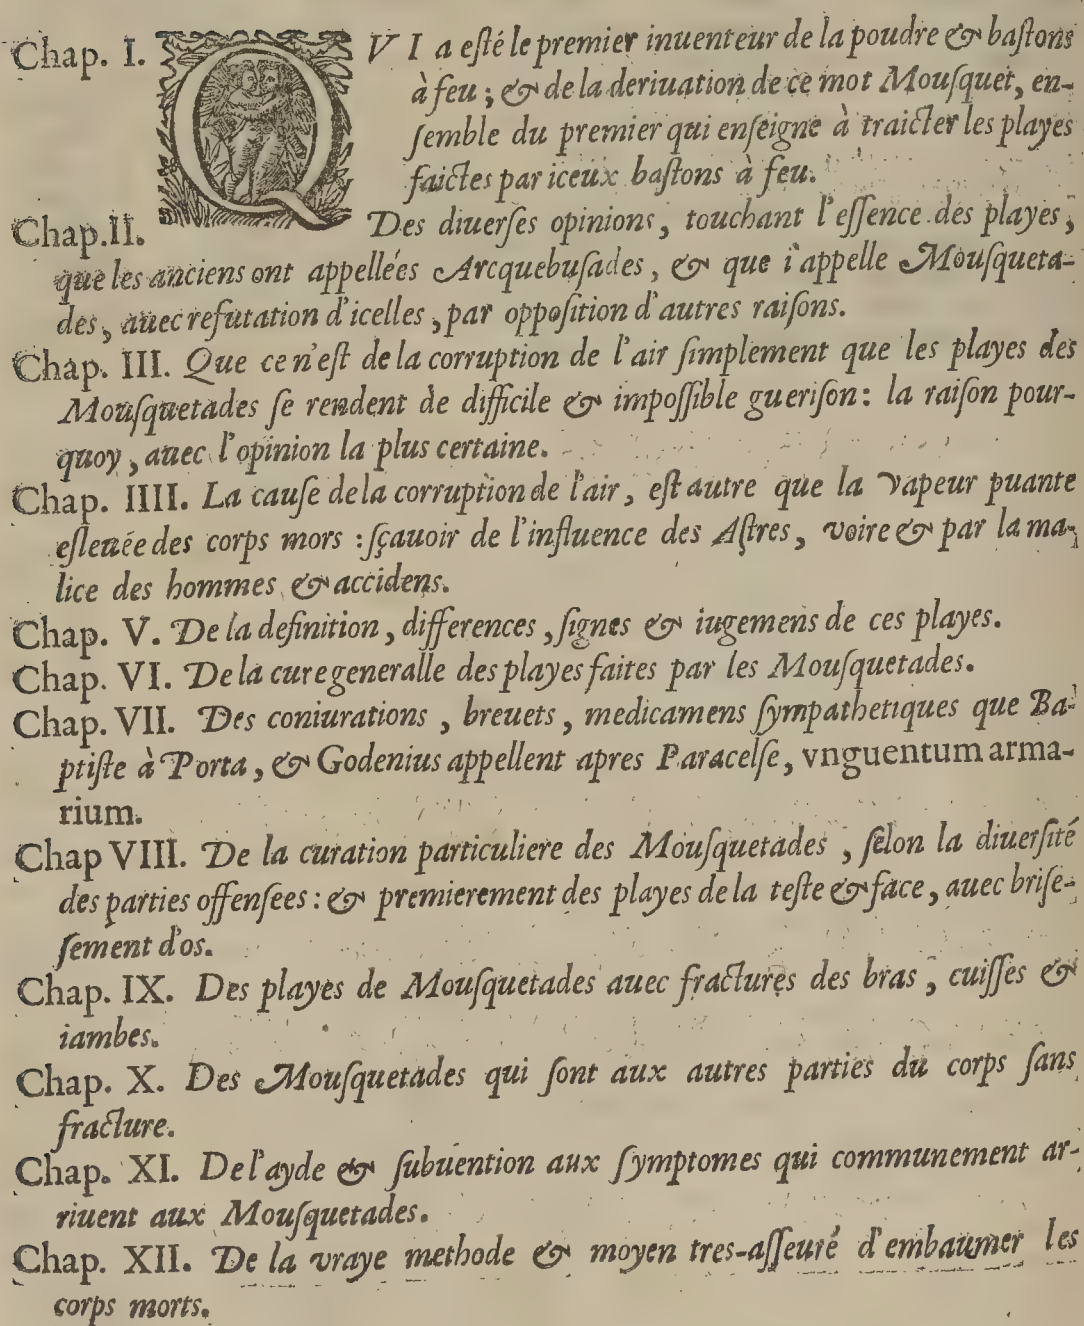 Chap. I. QVI a eſté le premier inuenteur de la poudre & baſtons
à feu ; & de la deriuation de ce mot Mouſquet, en-
ſemble du premier qui enſeigne à traicter les playes
faictes par iceux baſtons à feu.
Chap. II. Des diuerſes opinions, touchant l'eſſence des playes,
que les anciens ont appellées Arcquebuſades, & que i'appelle Mouſqueta-
des, auec refutation d'icelles, par oppoſition d'autres raiſons.
Chap. III. Que ce n'eſt de la corruption de l'air ſimplement que les playes des
Mouſquetades ſe rendent de difficile & impoſſible gueriſon : la raiſon pour-
quoy, auec l'opinion la plus certaine.
Chap. IIII. La cauſe de la corruption de l'air, eſt autre que la vapeur puante
eſleuée des corps mors : ſçauoir de l'influence des Aſtres, voire & par la ma-
lice des hommes & accidens.
Chap. V. De la definition, differences, ſignes & iugemens de ces playes.
Chap. VI. De la cure generalle des playes faites par les Mouſquetades.
Chap. VII. Des coniurations, breuets, medicamens ſympathetiques que Ba-
ptiſte à Porta, & Godenius appellent apres Paracelſe, vnguentum arma-
rium.
Chap VIII. De la curation particuliere des Mouſquetades, ſelon la diuerſité
des parties offenſees : & premierement des playes de la teſte & face, auec briſe-
ſement d'os.
Chap. IX. Des playes de Mouſquetades auec fractures des bras, cuiſſes &
iambes.
Chap. X. Des Mouſquetades qui ſont aux autres parties du corps ſans
fracture.
Chap. XI. De l'ayde & ſubuention aux ſymptomes qui communement ar-
riuent aux Mouſquetades.
Chap. XII. De la vraye methode & moyen tres-aſſeuré d'embaumer les
corps morts.